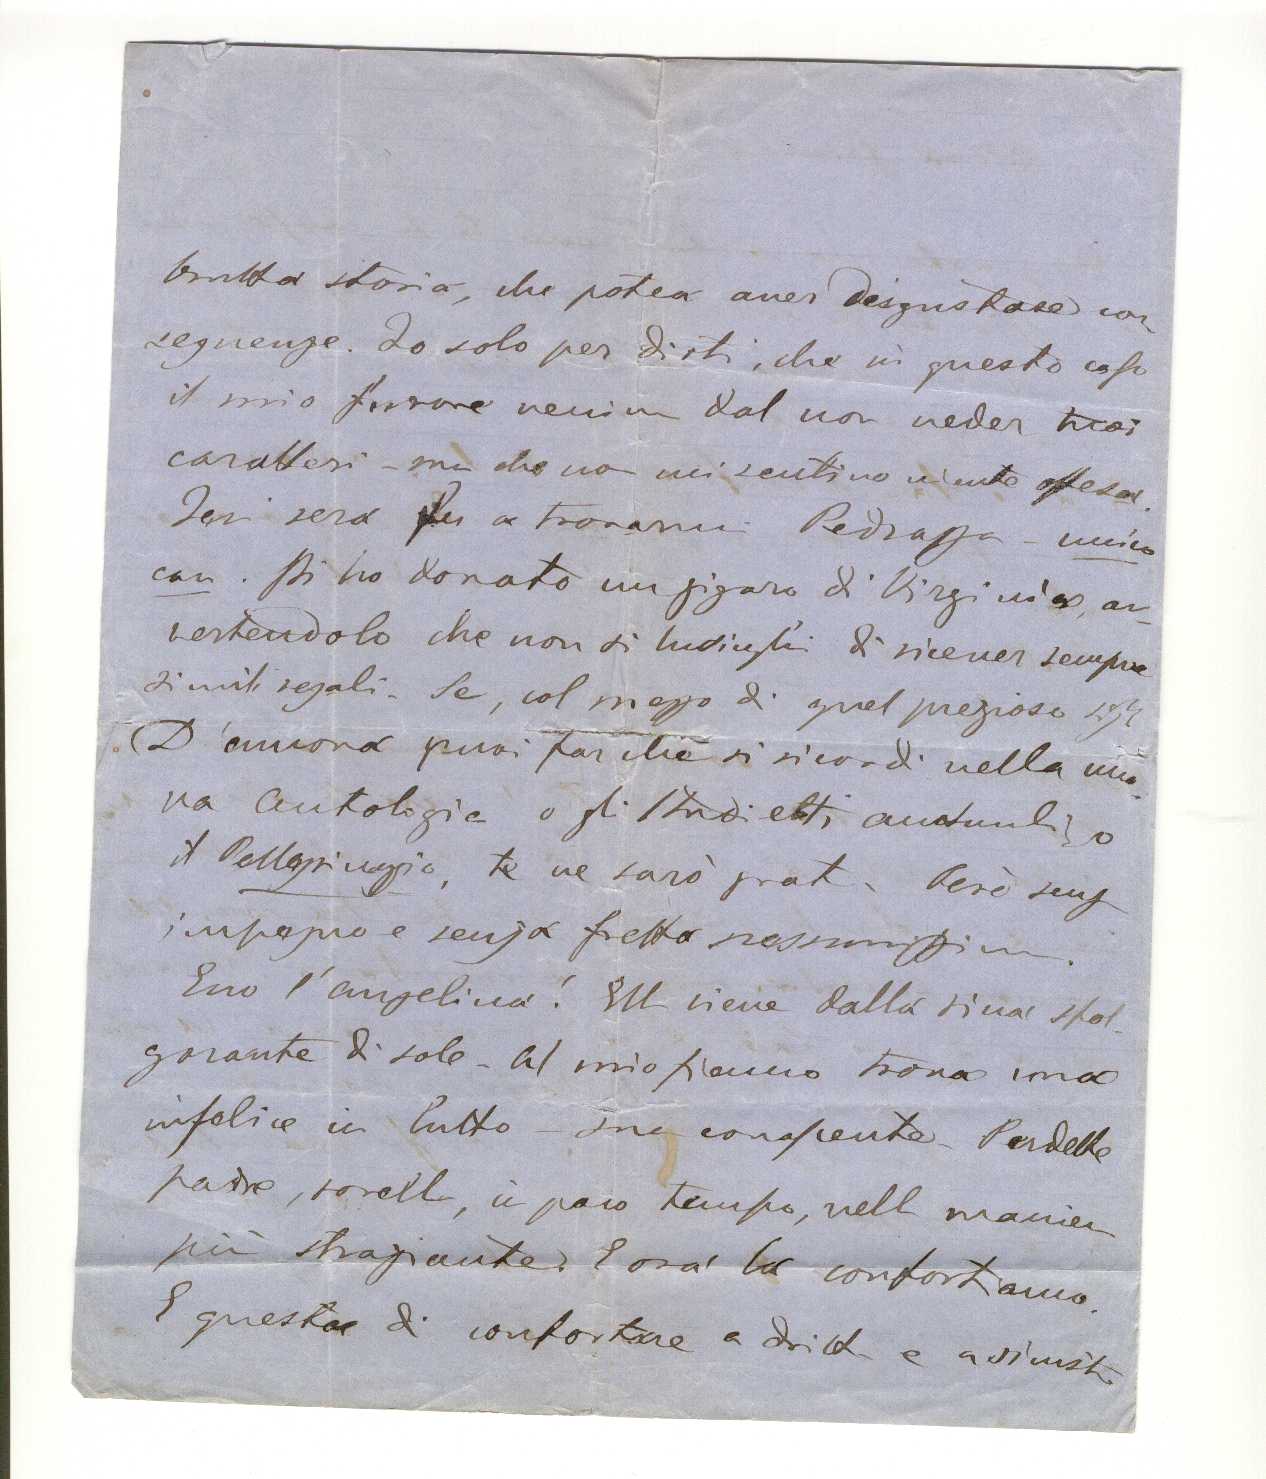 brutta storia, che potea aver disgustose con
seguenze. Io solo per dirti, che in questo caso
il mio furore veniva dal non veder tuoi
caratteri - ma che non mi sentivo niente offesa.
Ieri sera fu a trovarmi Pedrazza - unico
can. Gli ho donato un zigaro di Virginia, av-
vertendolo che non si lusinghi di ricever sempre
simili regali. Se, col mezzo di quel prezioso
D'Ancona puoi far che si ricordi nella nuo-
va Antologia o gli Studietti o
il Pellegrinaggio, te ne sarò grat. Però senz
impegno e senza fretta nessunissima.
Ecco l'Angelina! Ell viene dalla sfol-
gorante di sole - Al mio fianco trova una
infelice in tutto - Perdette
padre, sorella, in poco tempo, nell manier
più straziante. E ora la confortiamo.
E questa di confortare a dritt e a sinist.